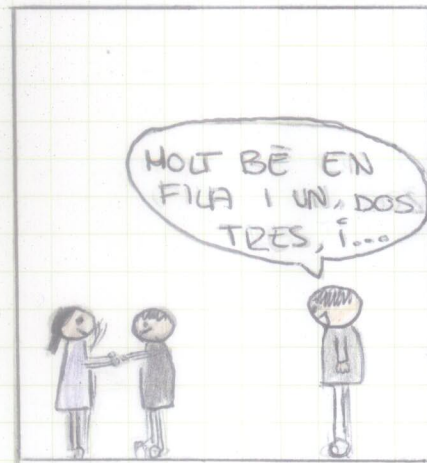 MOLT BÉ EN
FILA I UN, DOS
TRES, I...